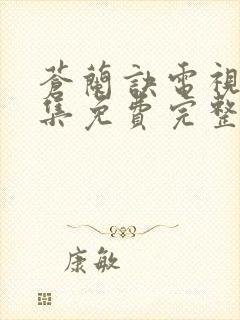 蒼蘭訣電視
集免費完整
康敏